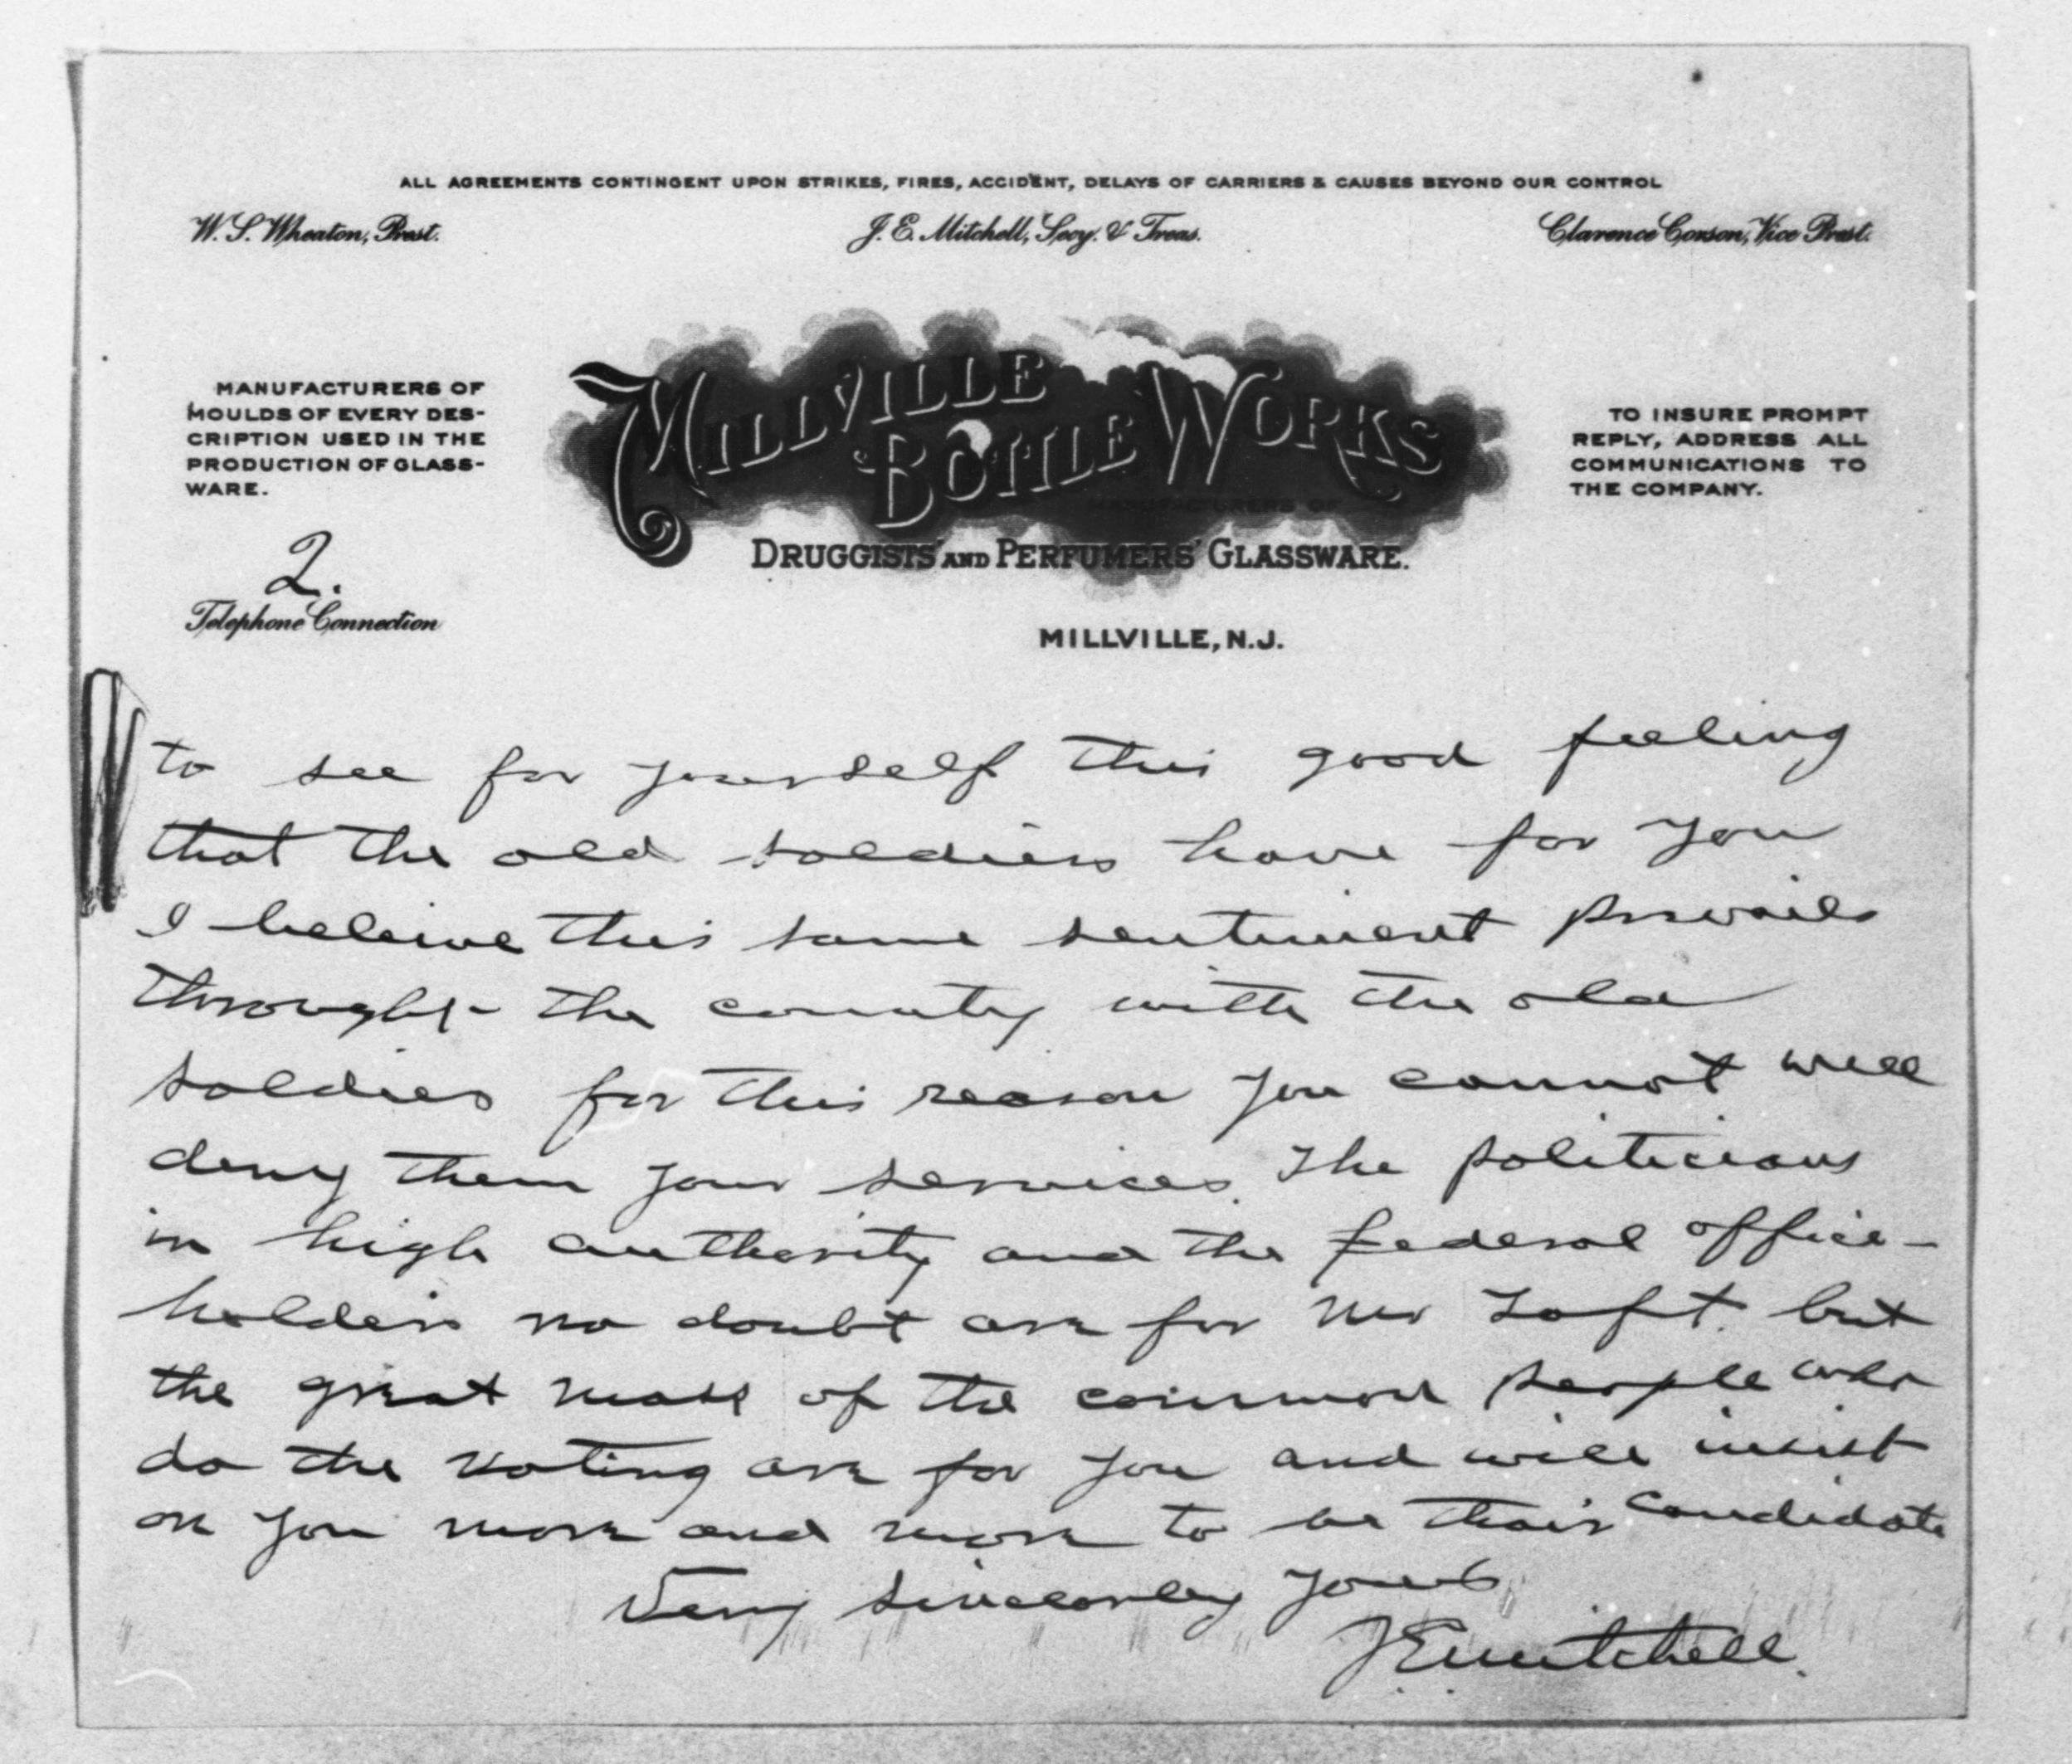 ALL AGREEMENTS CONTINGENT UPON STRIKES, FIRES, ACCIDENT, DELAYS OF CARRIERS & CAUSES BEYOND OUR CONTROL
W. S. Wheaton, Prest. J. E. Mitchell, Secy. & Treas. Clarence Corson, Vice Prest.
MANUFACTURERS OF
MOULDS OF EVERY DES-
CRIPTION USED IN THE
PRODUCTION OF GLASS-
WARE.
MILLVILLE
BOTTLE WORKS
MANUFACTURERS OF
DRUGGISTS' AND PERFUMERS' GLASSWARE.
TO INSURE PROMPT
REPLY, ADDRESS ALL
COMMUNICATIONS TO
THE COMPANY.
2.
Telephone Connection
MILLVILLE, N.J.
to see for yourself this good feeling
that the old soldiers have for you
I beleive this same sentiment prevails
through the county with the old
soldies for this reason you cannot well
deny them your services. The politicians
in high authority and the federal office-
holders no doubt are for Mr Toft. but
the great mass of the common people who
do the voting are for you and will insist
on you more and more to be their candidate
Very sincerely yours
J E Mitchell.